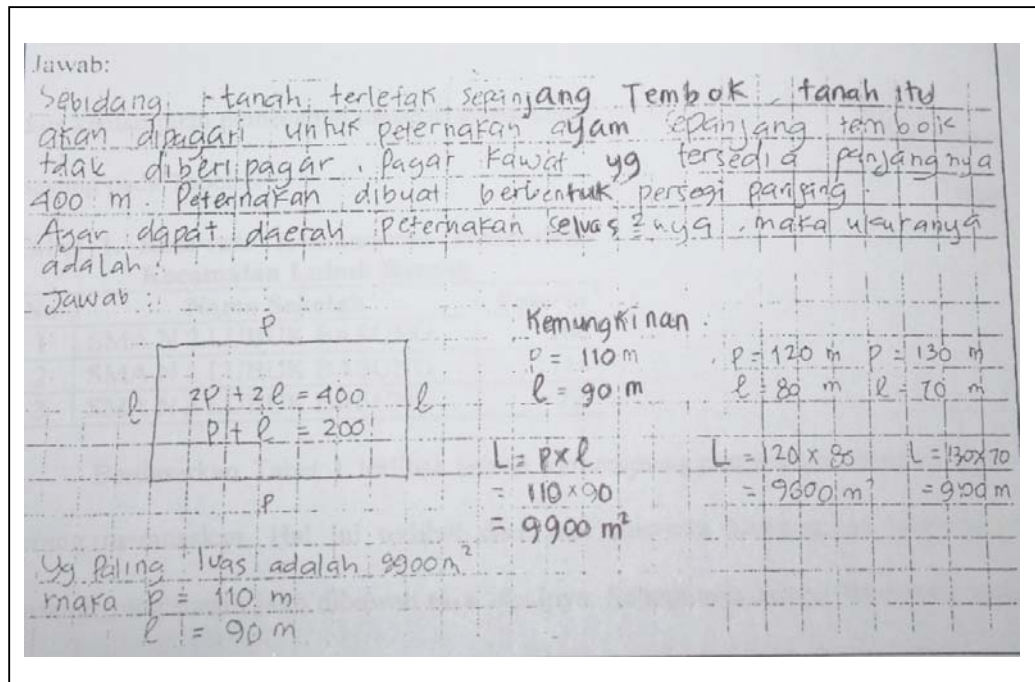 Jawab:
Sebidang tanah terletak sepanjang Tembok. tanah itu
akan dipagari untuk peternakan ayam sepanjang tembok
tdak diberi pagar. Pagar kawat yg tersedia panjangnya
400 m. Peternakan dibuat berbentuk persegi panjang.
Agar dapat daerah peternakan seluas2nya. maka ukuranya
adalah..
Jawab :
P
l
2P + 2l = 400
P + l = 200
l
P
Kemungkinan :
P = 110 m P = 120 m P = 130 m
l = 90 m l = 80 m l = 70 m
L = P x l L = 120 x 80 L = 130x70
= 110 x 90 = 9600 m² = 9100 m
= 9900 m²
yg Paling luas adalah 9900 m²
maka P = 110 m
l = 90 m